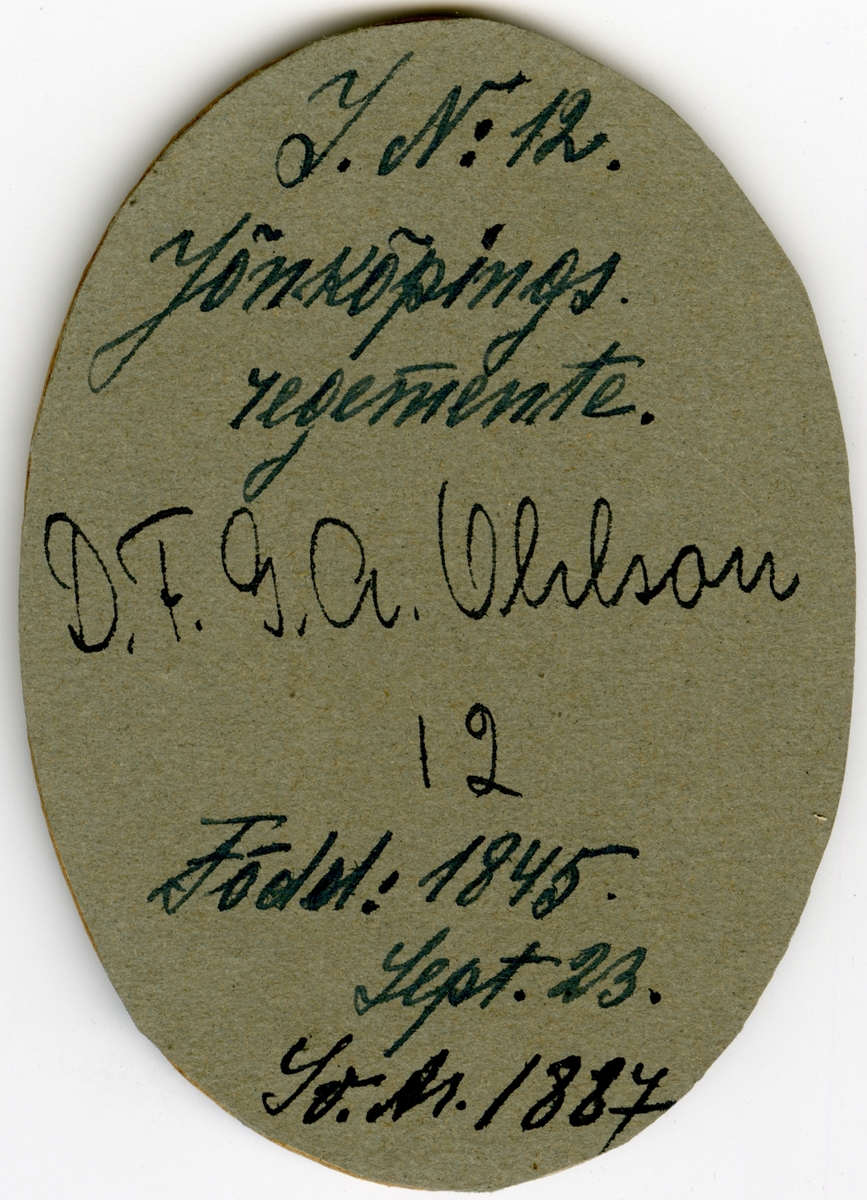 I. Nº: 12.
Jönköpings.
regemente.
D. F. G. A. Uhlson
12
Född: 1845.
Sept. 23.
Sv. M. 1887